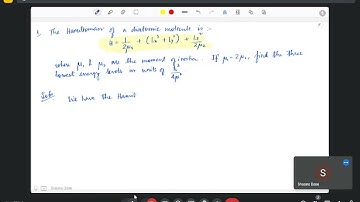 1. The Hamiltonian of a diatomic molecule is :-
H = 1/2μ₁ + (Lx² + Ly²) + Lz²/2μ₂
where μ₁ & μ₂ are the moment of inertia. If μ₁ = 2μ₂, find the three
lowest energy levels in units of
Soln: We have the Hami
S